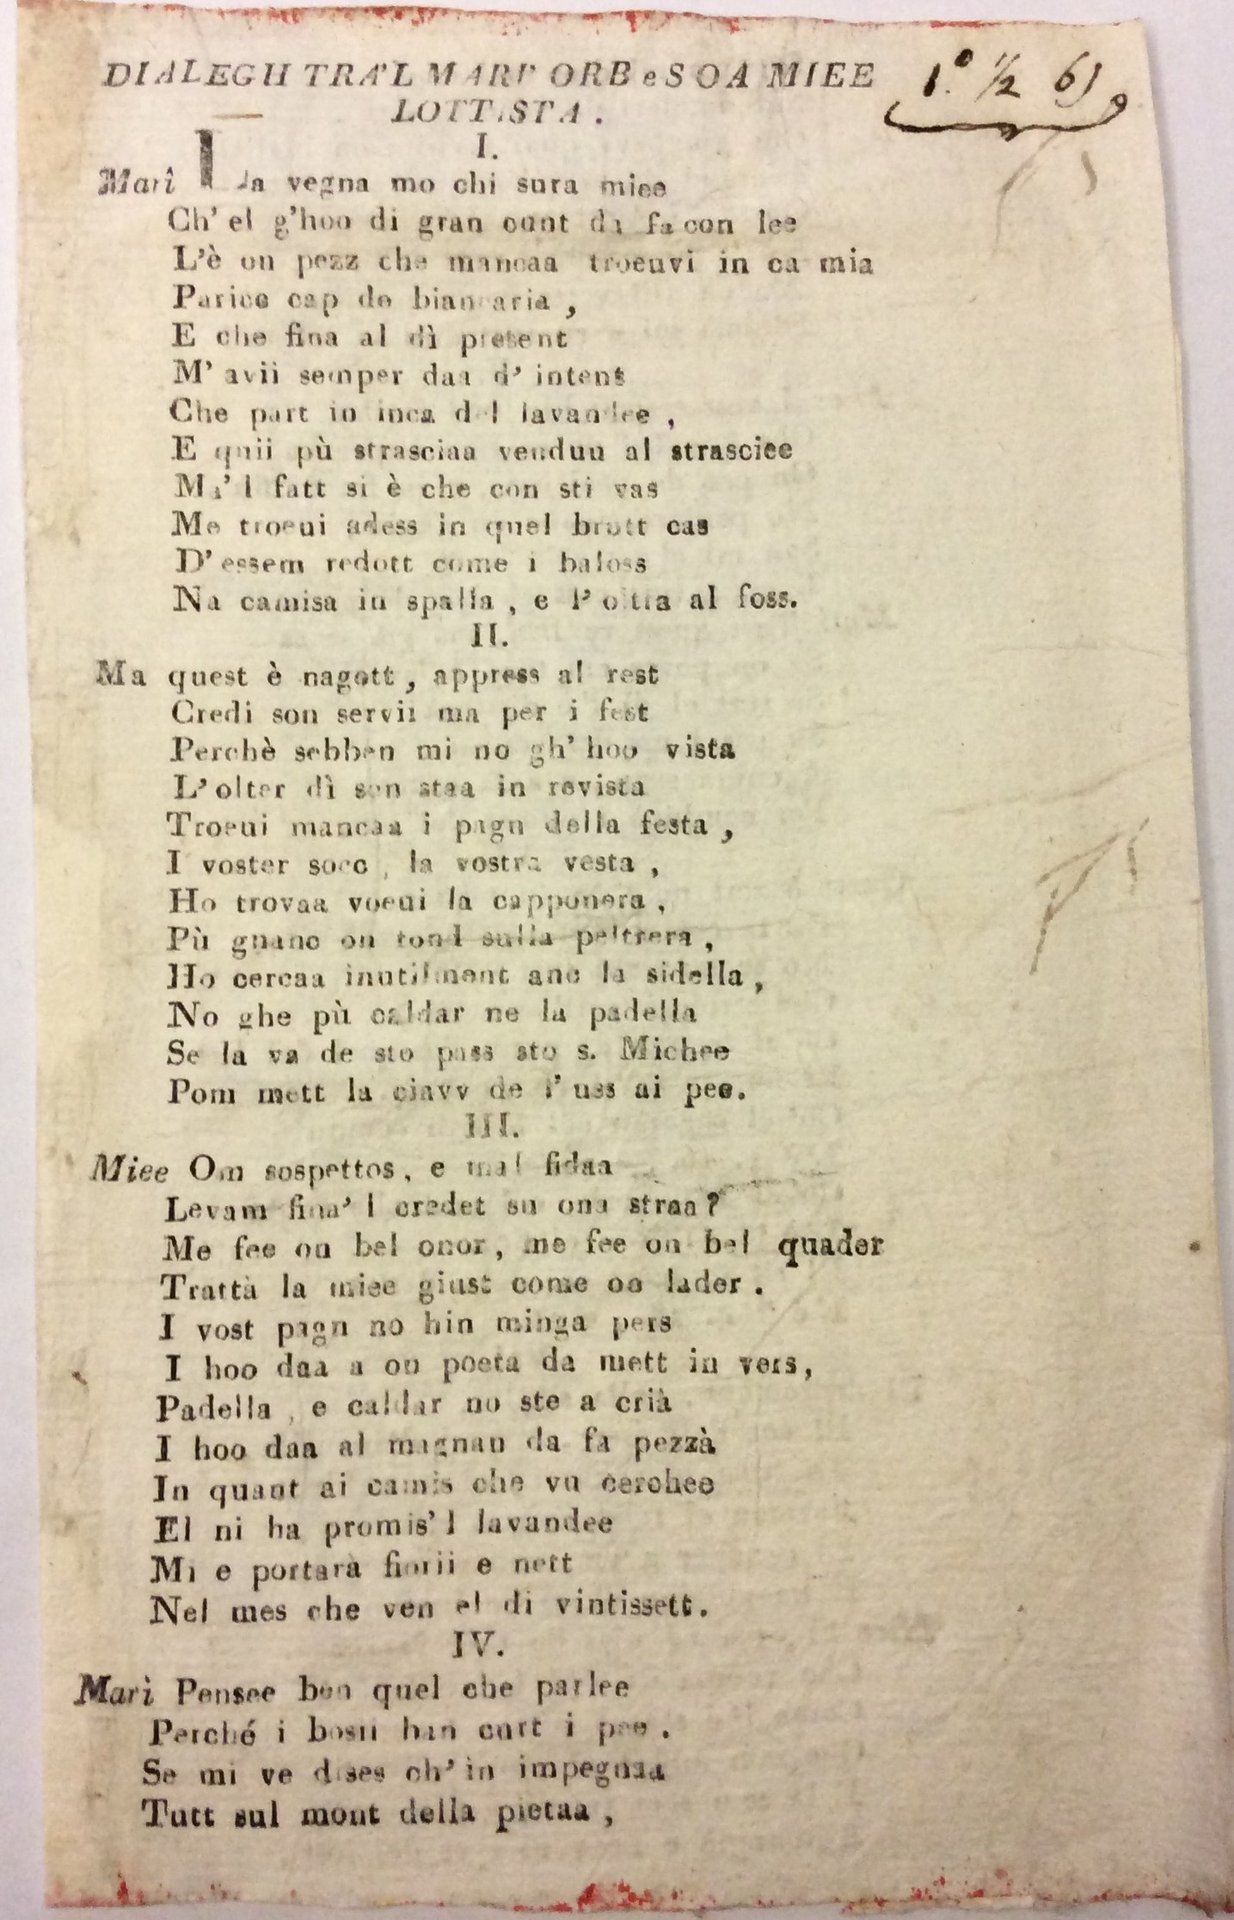 DIALEGH TRA'L MARI' ORB e SOA MIEE
LOTTISTA.
1.° 1/2 6)
I.
Marì La vegna mo chi sura miee
Ch' el g'hoo di gran cunt da fa con lee
L'è on pezz che mancaa troeuvi in ca mia
Paricc cap de biancaria,
E che fina al dì present
M' avii semper daa d' intent
Che part in inca del lavandee,
E quii pù strasciaa venduu al strasciee
Ma' l fatt si è che con sti vas
Me troeui adess in quel brutt cas
D' essem redott come i baloss
Na camisa in spalla, e l' oltra al foss.
II.
Ma quest è nagott, appress al rest
Credi son servii ma per i fest
Perchè sebben mi no gh' hoo vista
L' olter dì son staa in revista
Troeui mancaa i pagn della festa,
I voster socc, la vostra vesta,
Ho trovaa voeui la capponera,
Pù gnanc on tond sulla peltrera,
Ho cercaa inutilment anc la sidella,
No ghe pù caldar ne la padella
Se la va de sto pass sto s. Michee
Pom mett la ciavv de l' uss ai pee.
III.
Miee Om sospettos, e mal fidaa
Levam fina' l credet su ona straa?
Me fee on bel onor, me fee on bel quader
Trattà la miee giust come on lader.
I vost pagn no hin minga pers
I hoo daa a on poeta da mett in vers,
Padella, e caldar no ste a crià
I hoo daa al magnan da fa pezzà
In quant ai camis che vu cerchee
El ni ha promis' l lavandee
Mi e portarà fiorii e nett
Nel mes che ven el di vintissett.
IV.
Marì Pensee ben quel che parlee
Perché i bosii han curt i pee.
Se mi ve dises ch' in impegnaa
Tutt sul mont della pietaa,